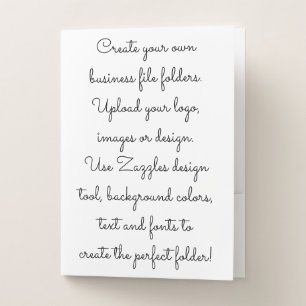 Create your own
business file folders.
Upload your logo,
images or design.
Use Zazzles design
tool, background colors,
text and fonts to
create the perfect folder!